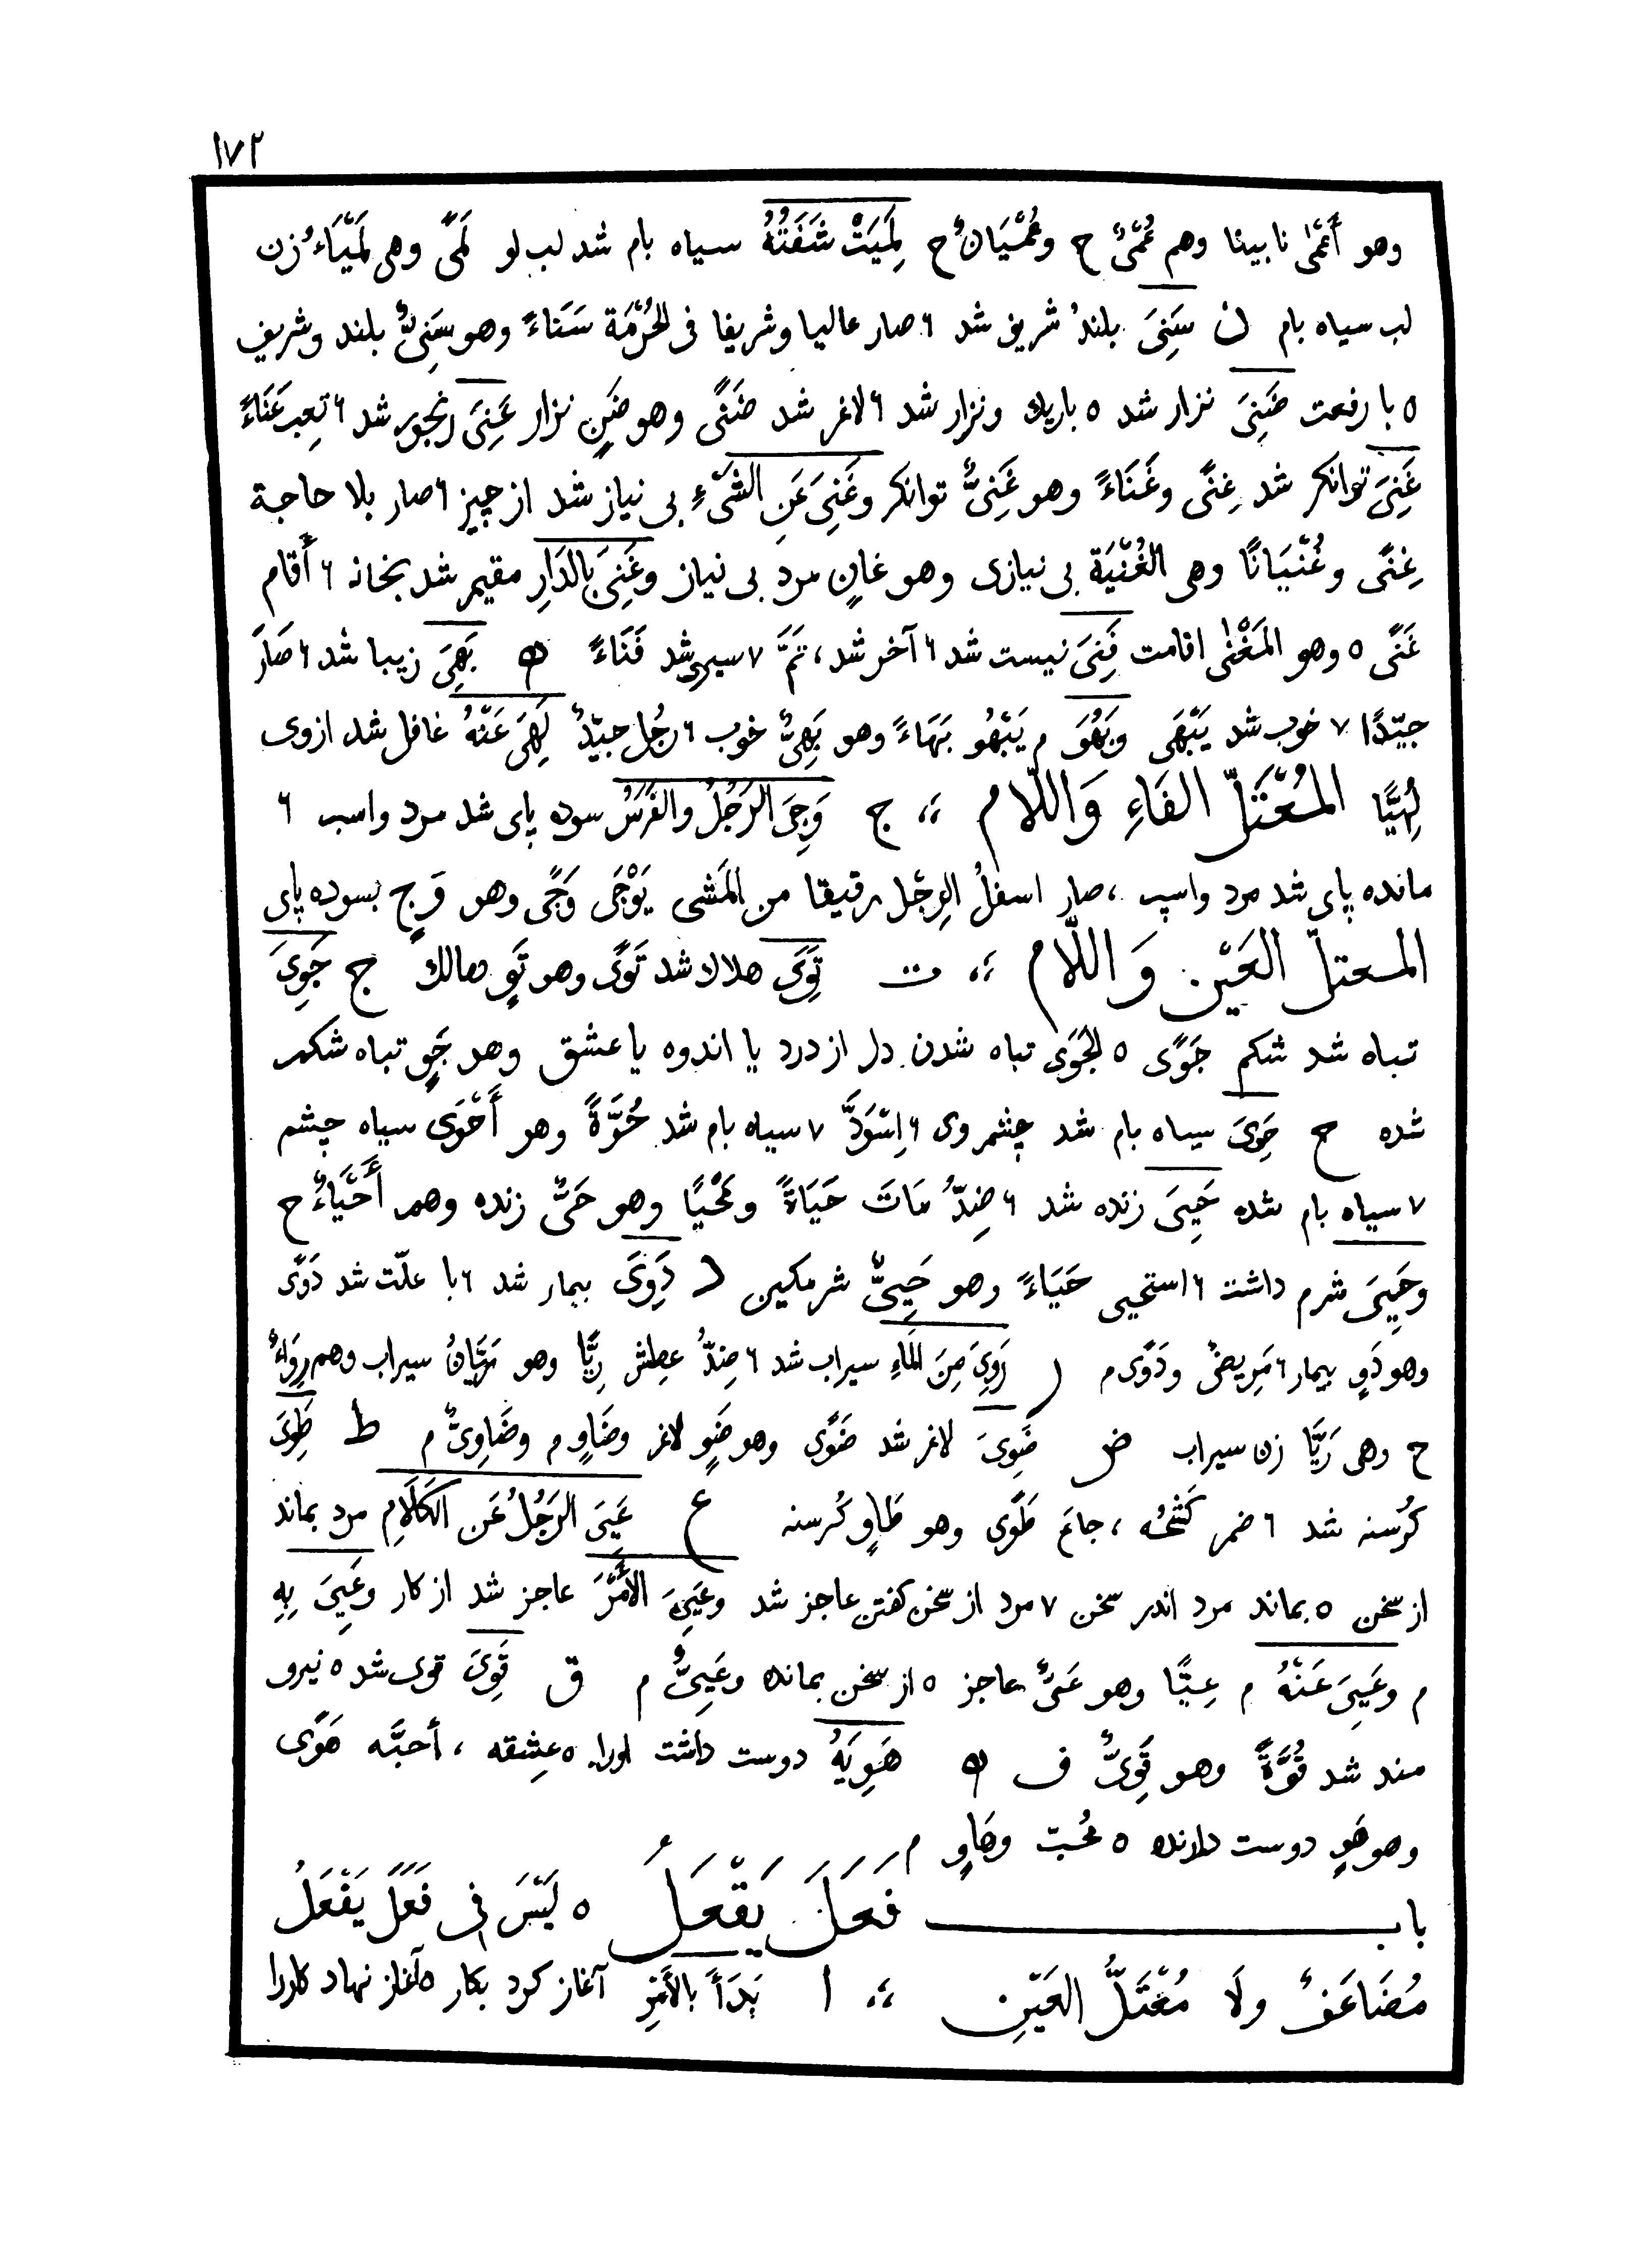 ۱۷۲
وهو أَعْمٰى نابینا وهم عُمْىٌ ح وعُمْيَانٌ ح لَمِيَتْ شَفَتُهُ سیاه بام شد لب لو لَمًى وهى لَمْيَاءُ زن
لب سیاه بام ن سَنِىَ بلندُ شریف شد ۶ صار عالیا وشریفا فی الحُرْمَة سَنَاءً وهو سَنِىٌّ بلند وشریف
٥ با رفعت ضَنِىَ نزار شد ٥ باریك ونزار شد ۶ لاغر شد ضَنًى وهو ضَنٍ نزار عَنِىَ رنجور شد ۶ تعِب عَنَاءً
غَنِىَ توانكر شد غِنًى وغَنَاءً وهو غَنِىٌّ توانكر وغَنِىَ عَنِ الشَىْءِ بی نیاز شد از چیز ۶ صار بلا حاجة
غِنًى وغُنْيَانًا وهى الغُنْيَة بی نیازی وهو غانٍ مرد بی نیاز وغَنِىَ بِالدَارِ مقیم شد بخانه ۶ أَقام
غَنًى ٥ وهو المَغْنٰى اقامت فَنِىَ نیست شد ۶ آخر شد ، تَمَّ ۷ سپری شد فَنَاءً ه بَهِىَ زیبا شد ۶ صَارَ
جیّدًا ۷ خوب شد يَبْهَى وبَهُوَ م يَبْهُو بَهَاءً وهو بَهِىٌّ خوب ۶ رَجُل جیّدٌ لَهِىَ عَنْهُ غافل شد ازوی
لُهِيًّا المُعْتَلّ الفَاءِ وَاللّام ؛؛ ج وَجِىَ الرَجُلُ والفَرَسُ سوده پای شد مرد واسب ۶
مانده پای شد مرد واسپ ، صار اسفلُ الرِجْل رقیقا من المَشى يَوْجَى وَجًى وهو وَجٍ بسوده پای
المعتلّ العَيْن وَاللّام ؛؛ ت تَوِىَ هلاك شد تَوًى وهو تَوٍ هالك ج جَوِىَ
تباه شد شكم جَوًى ٥ الجَوَى تباه شدن دل از درد یا اندوه یا عشق وهو جَوٍ تباه شكم
شده ح حَوِىَ سیاه بام شد چشم وی ۶ اِسْوَدَّ ۷ سیاه بام شد حُوَّةً وهو أَحْوَى سیاه چشم
۷ سیاه بام شده حَيِىَ زنده شد ۶ ضِدُّ مَاتَ حَيَاةً ومَحْيًا وهو حَىٌّ زنده وهم أَحْيَاءٌ ح
وحَيِىَ شرم داشت ۶ استحیى حَيَاءً وهو حَيِىٌّ شرمكین د دَوِىَ بیمار شد ۶ با علّت شد دَوًى
وهو دَوٍ بیمار ۶ مَرِیضٌ ودَوًى م ر رَوِىَ مِنَ المَاءِ سیراب شد ۶ ضِدُّ عطِش رِيًّا وهو رَيَّانُ سیراب وهم رِوَاءٌ
ح وهى رَيَّا زن سیراب ض ضَوِىَ لاغر شد ضَوًى وهو ضَوٍ لاغر وضَاوٍ م وضَاوِىٌّ م ط طَوِىَ
كُرسنه شد ۶ ضمر كَشْحُه ، جاعَ طَوًى وهو طَاوٍ كُرسنه ع عَيِىَ الرَجُلُ عَن الكَلَامِ مرد بماند
از سخن ٥ بماند مرد اندر سخن ۷ مرد از سخن كفتن عاجز شد وعَيِىَ الأَمْرَ عاجز شد از كار وعَيِىَ بِهِ
م وعَيِىَ عَنْهُ م عِيًّا وهو عَىٌّ عاجز ٥ از سخن بمانده وعَيِىٌّ م ق قَوِىَ قوی شد ٥ نیرو
مند شد قُوَّةً وهو قَوِىٌّ ف ه هَوِيَهُ دوست داشت اورا ٥ عشِقه ، أحبَّه هَوًى
وهو هَوٍ دوست دارنده ٥ مُحبّ وهَاوٍ م
باب فَعَلَ يَفْعَلُ ٥ لَيْسَ فی فَعَلَ يَفْعَلُ
مُضَاعَفٌ ولَا مُعْتَلُّ العَيْنِ ؛؛ ا بَدَأَ بِالأَمْرِ آغاز كرد بكار ٥ آغاز نهاد كاررا